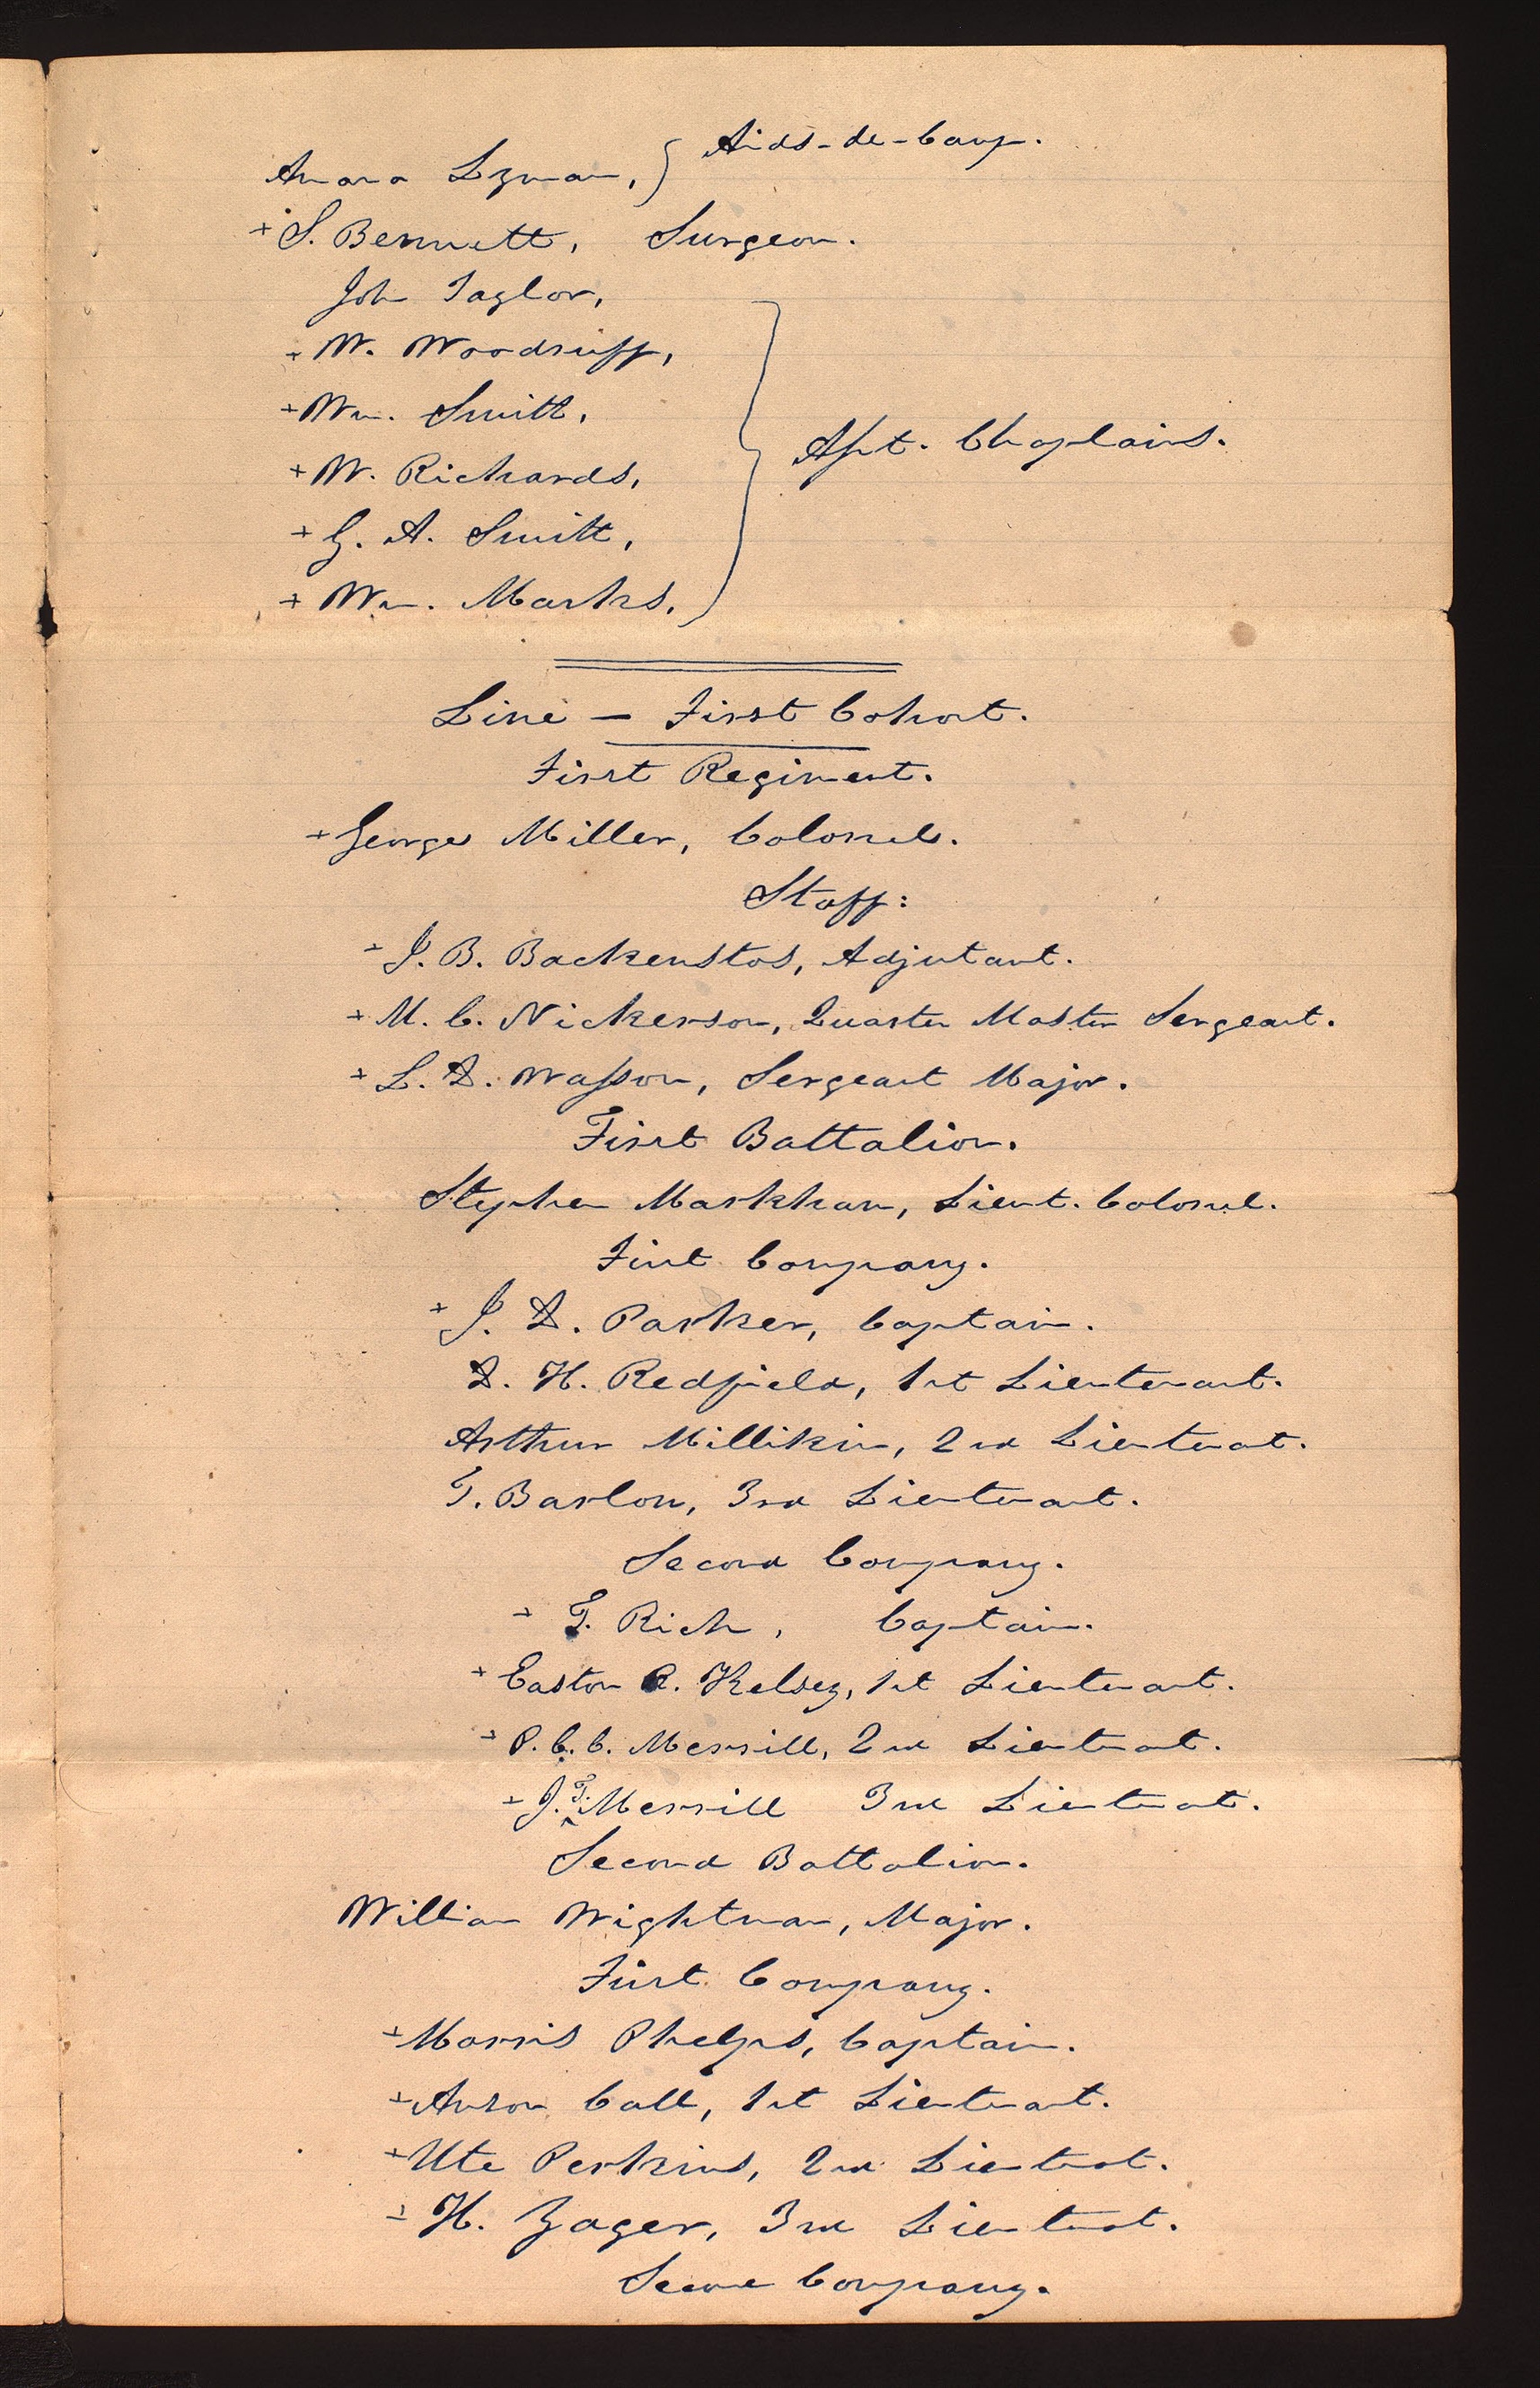 Amasa Lyman, } Aids-de-Camp.
+ S. Bennett, Surgeon.
John Taylor,
+ W. Woodruff,
+ Wm. Smith,
+ W. Richards, } Asst. Chaplains.
+ G. A. Smith,
+ Wm. Marks,
Line — First Cohort.
First Regiment.
+ George Miller, Colonel.
Staff:
+ J. B. Backenstos, Adjutant.
+ M. C. Nickerson, Quarter Master Sergeant.
+ L. D. Wasson, Sergeant Major.
First Battalion.
Stephen Markham, Lieut. Colonel.
First Company.
+ J. D. Parker, Captain.
D. H. Redfield, 1st Lieutenant.
Arthur Millikin, 2nd Lieutenant.
T. Barlow, 3rd Lieutenant.
Second Company.
+ T. Rich, Captain.
+ Easton R. Kelsey, 1st Lieutenant.
+ P. C. C. Merrill, 2nd Lieutenant.
+ J. T. Merrill 3rd Lieutenant.
Second Battalion.
William Wightman, Major.
First Company.
+ Morris Phelps, Captain.
+ Anson Call, 1st Lieutenant.
+ Ute Perkins, 2nd Lieutenant.
+ H. Yager, 3rd Lieutenant.
Second Company.